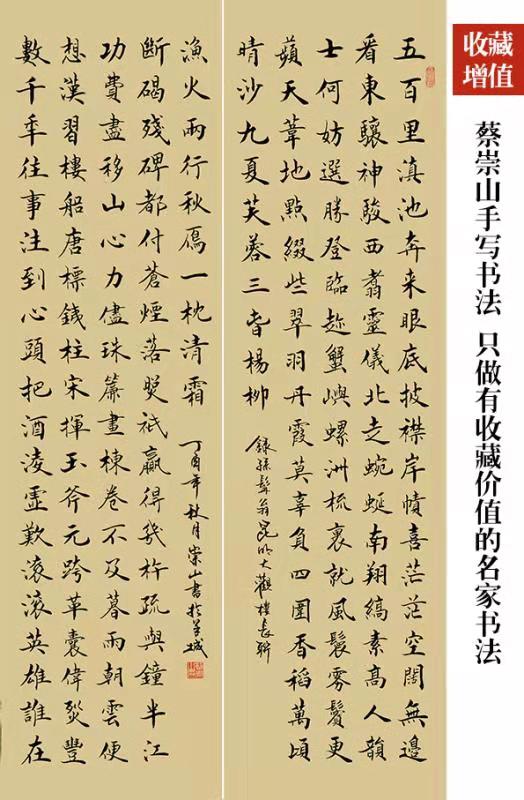 收藏
增值
蔡崇山手写书法 只做有收藏价值的名家书法
五百里滇池奔来眼底披襟岸幘喜茫茫空闊無邊
看東驤神駿西翥靈儀北走蜿蜒南翔縞素高人韻
士何妨選勝登臨趁蟹嶼螺洲梳裹就風鬟霧鬢更
蘋天葦地點綴些翠羽丹霞莫辜負四圍香稻萬頃
晴沙九夏芙蓉三春楊柳
錄孫髯翁昆明大觀樓長聯
數千年往事注到心頭把酒凌虛歎滾滾英雄誰在
想漢習樓船唐標鐵柱宋揮玉斧元跨革囊偉烈豐
功費盡移山心力儘珠簾畫棟卷不及暮雨朝雲便
斷碣殘碑都付蒼煙落照祇贏得幾杵疏與鐘半江
漁火兩行秋雁一枕清霜
丁酉年秋月崇山書於羊城